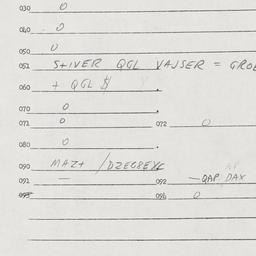 030 0
040 0
050 0
051 S+IVER QGL VAJSER = GROE
060 + QGL $ .
070 0 .
071 0 072 0
080 0 .
090 MAZ+ / DZEGREXE
091 — 092 — QAP DAX
095 096 0